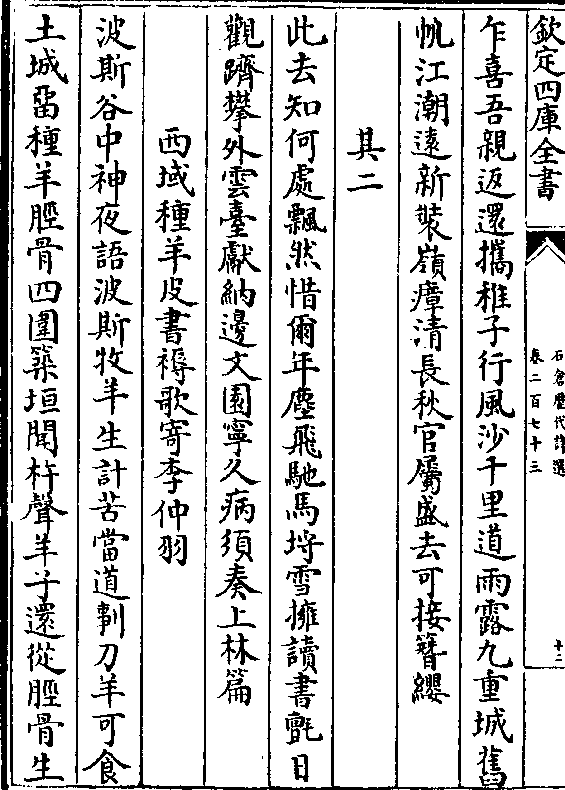 欽定四庫全書
石倉歷代詩選
卷二百七十三
十二
乍喜吾親返還攜稚子行風沙千里道雨露九重城舊
帆江潮遠新裝嶺瘴清長秋官屬盛去可接簪纓
其二
此去知何處飄然惜爾年塵飛馳馬埒雪擁讀書氈日
觀躋攀外雲臺獻納邊文園寧久病須奏上林篇
西域種羊皮書褥歌寄李仲羽
波斯谷中神夜語波斯牧羊生計苦當道剚刀羊可食
土城畱種羊脛骨四圍築垣聞杵聲羊子還從脛骨生